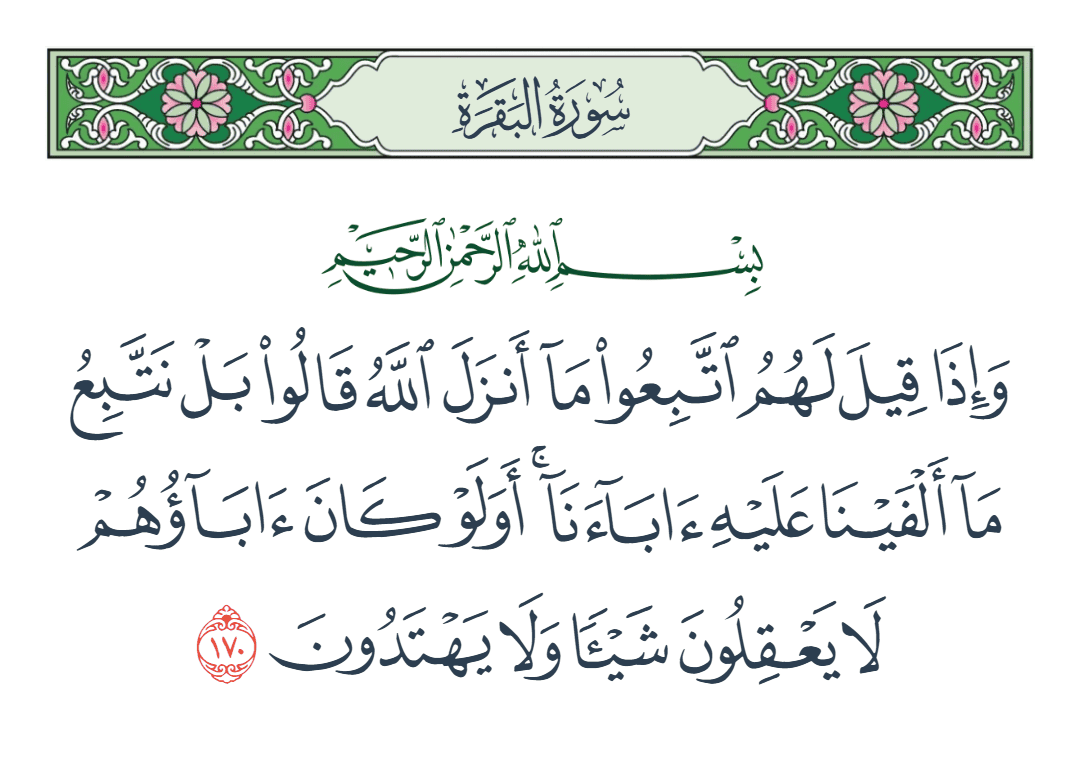 سُورَةُ البَقَرَةِ
بِسْمِ ٱللَّهِ ٱلرَّحْمَٰنِ ٱلرَّحِيمِ
وَإِذَا قِيلَ لَهُمُ ٱتَّبِعُوا۟ مَآ أَنزَلَ ٱللَّهُ قَالُوا۟ بَلْ نَتَّبِعُ
مَآ أَلْفَيْنَا عَلَيْهِ ءَابَآءَنَآ ۚ أَوَلَوْ كَانَ ءَابَآؤُهُمْ
لَا يَعْقِلُونَ شَيْـًٔا وَلَا يَهْتَدُونَ ١٧٠